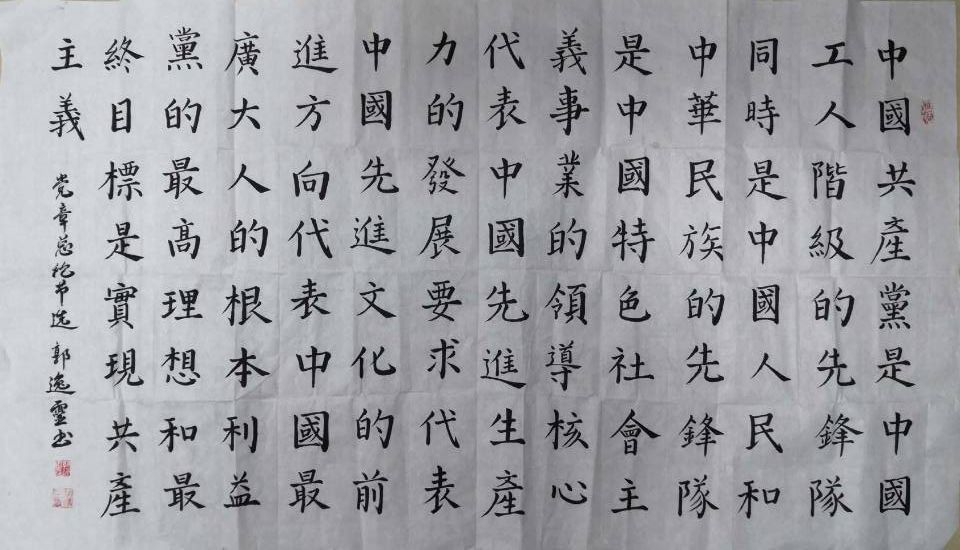 中國共產黨是中國
工人階級的先鋒隊
同時是中國人民和
中華民族的先鋒隊
是中國特色社會主
義事業的領導核心
代表中國先進生產
力的發展要求代表
中國先進文化的前
進方向代表中國最
廣大人的根本利益
黨的最高理想和最
終目標是實現共產
主義
党章总纲节选 郭逸霊书